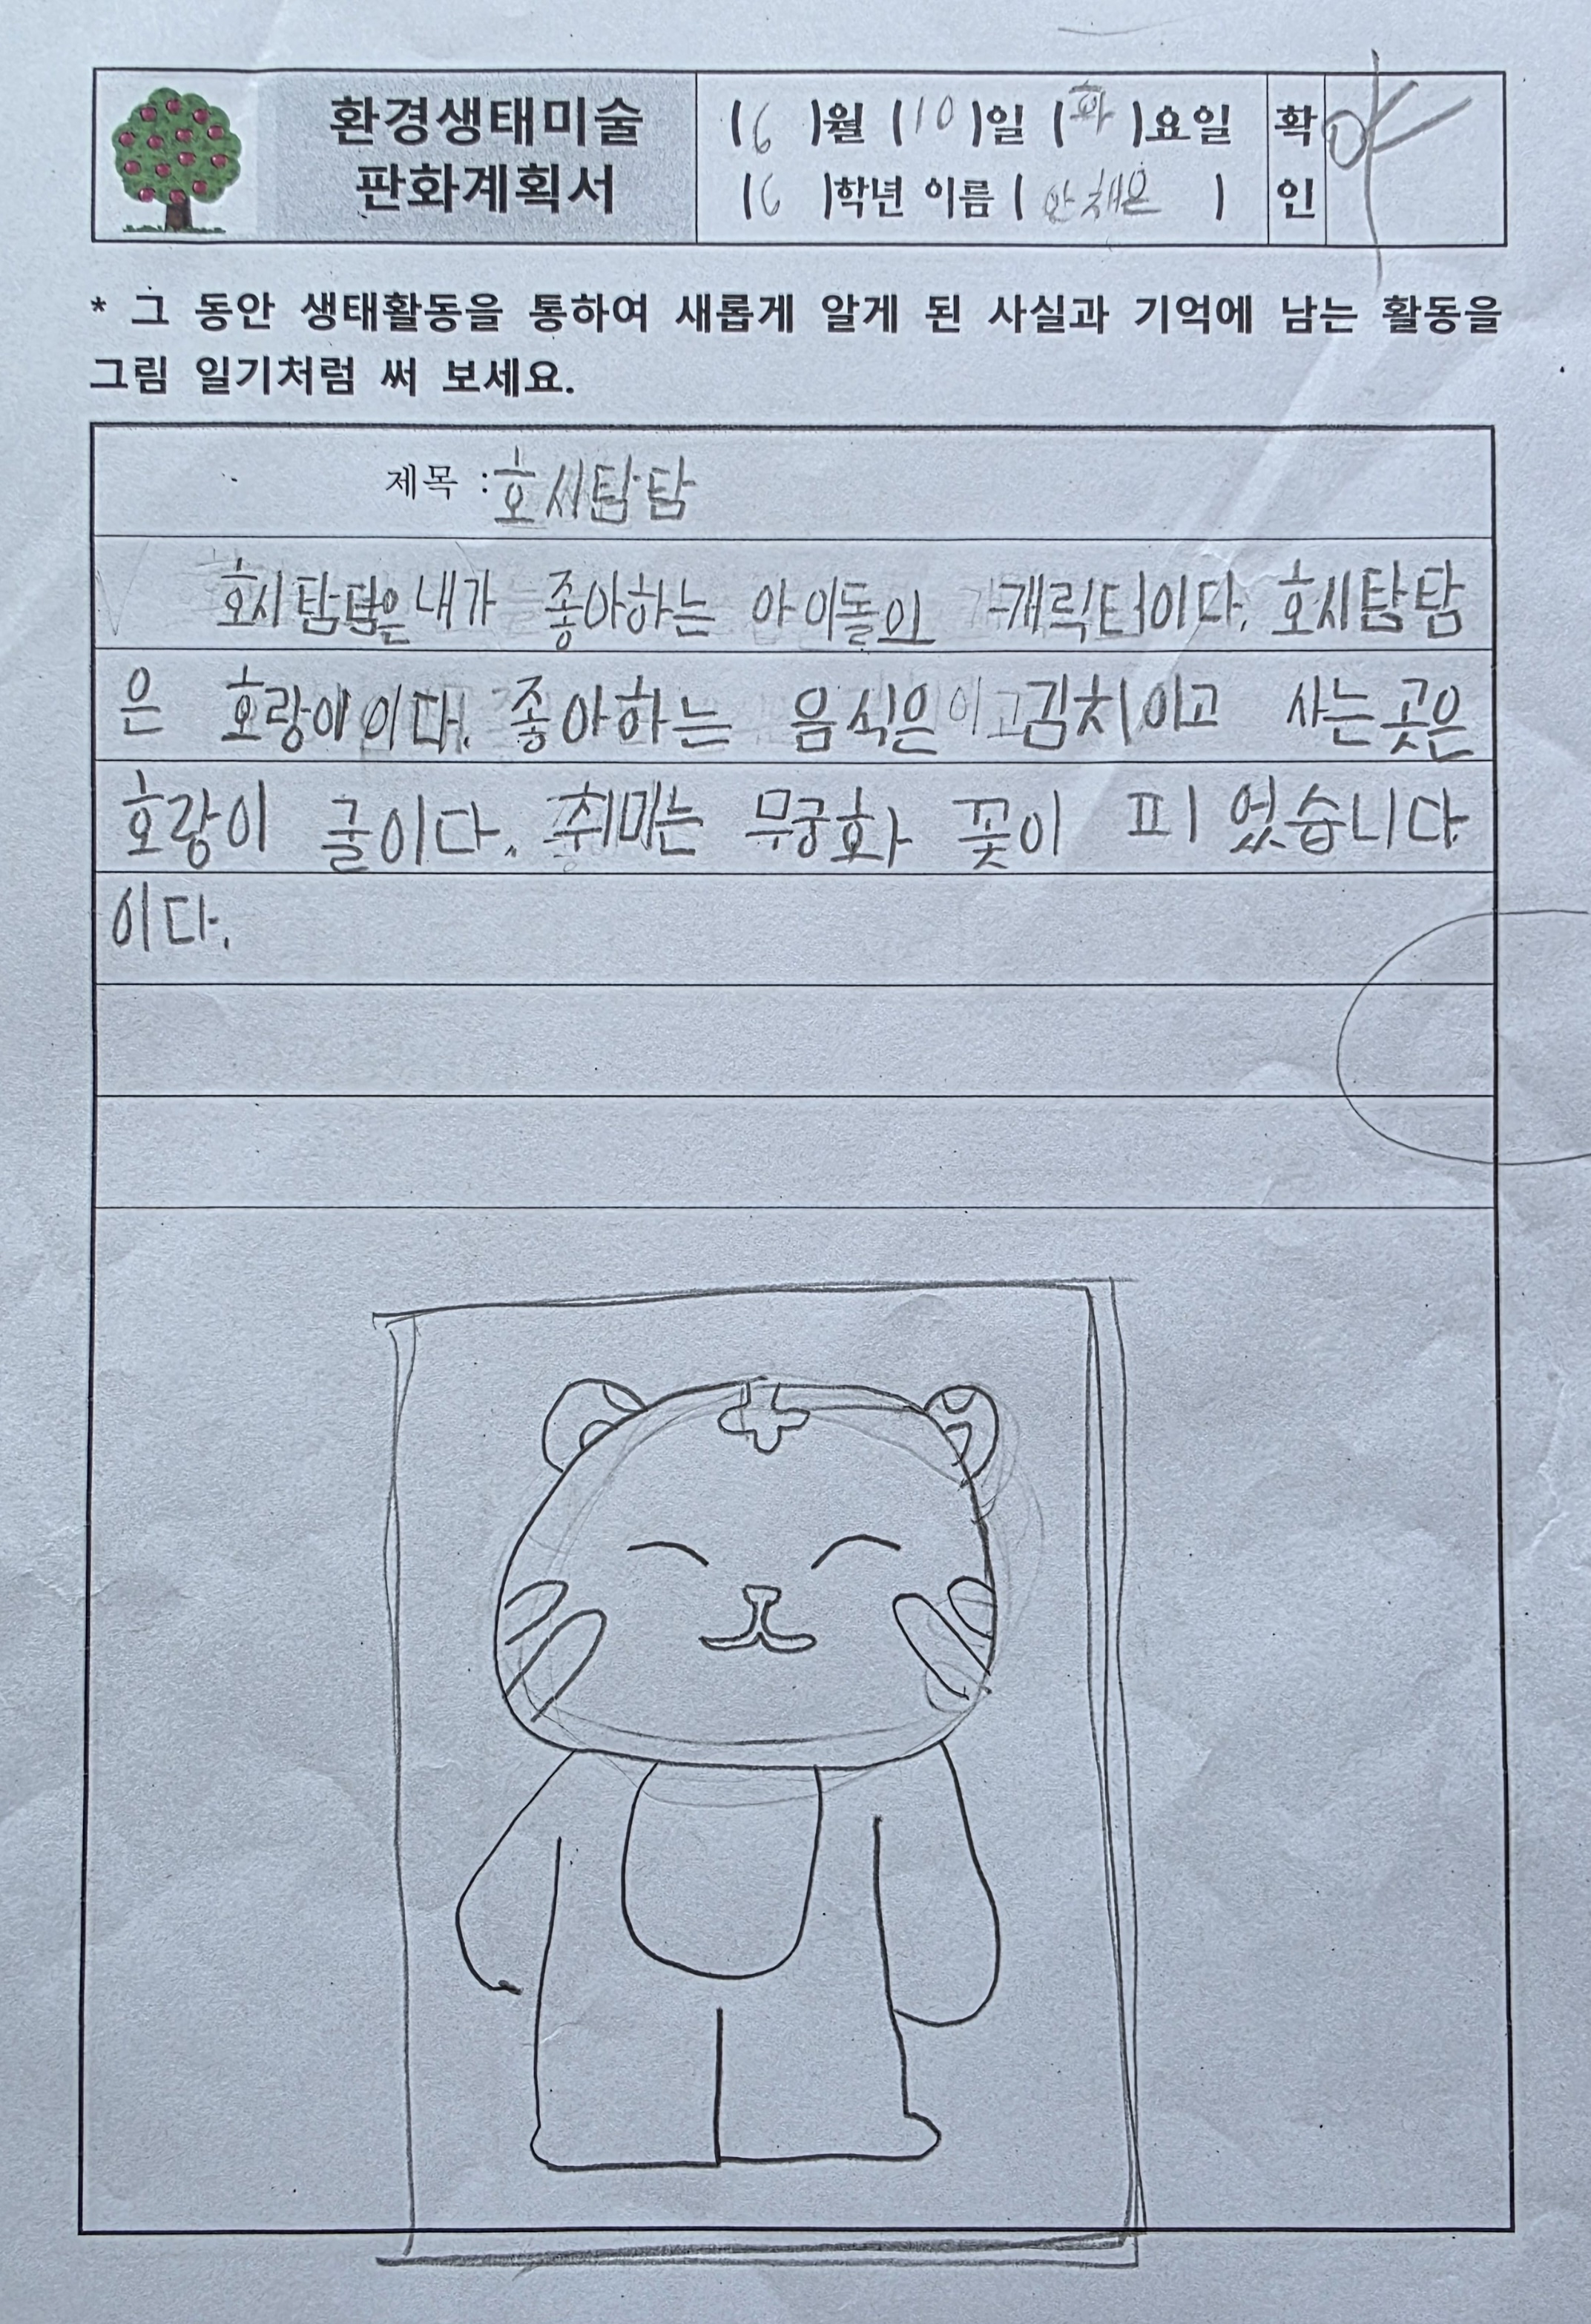 환경생태미술
판화계획서
(6)월 (10)일 (화)요일
(6)학년 이름 (안채은)
확
인
* 그 동안 생태활동을 통하여 새롭게 알게 된 사실과 기억에 남는 활동을
그림 일기처럼 써 보세요.
제목 : 호시탐탐
호시탐탐은 내가 좋아하는 아이돌의 캐릭터이다. 호시탐탐
은 호랑이이다. 좋아하는 음식은 김치이고 사는곳은
호랑이 굴이다. 취미는 무궁화 꽃이 피었습니다
이다.